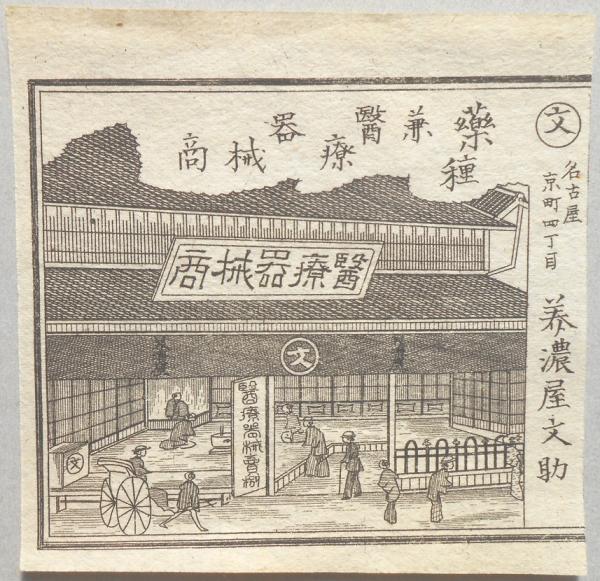 文
名古屋
京町四丁目
美濃屋文助
藥種兼醫療器械商
醫療器械商
文
醫療器械賣捌
文